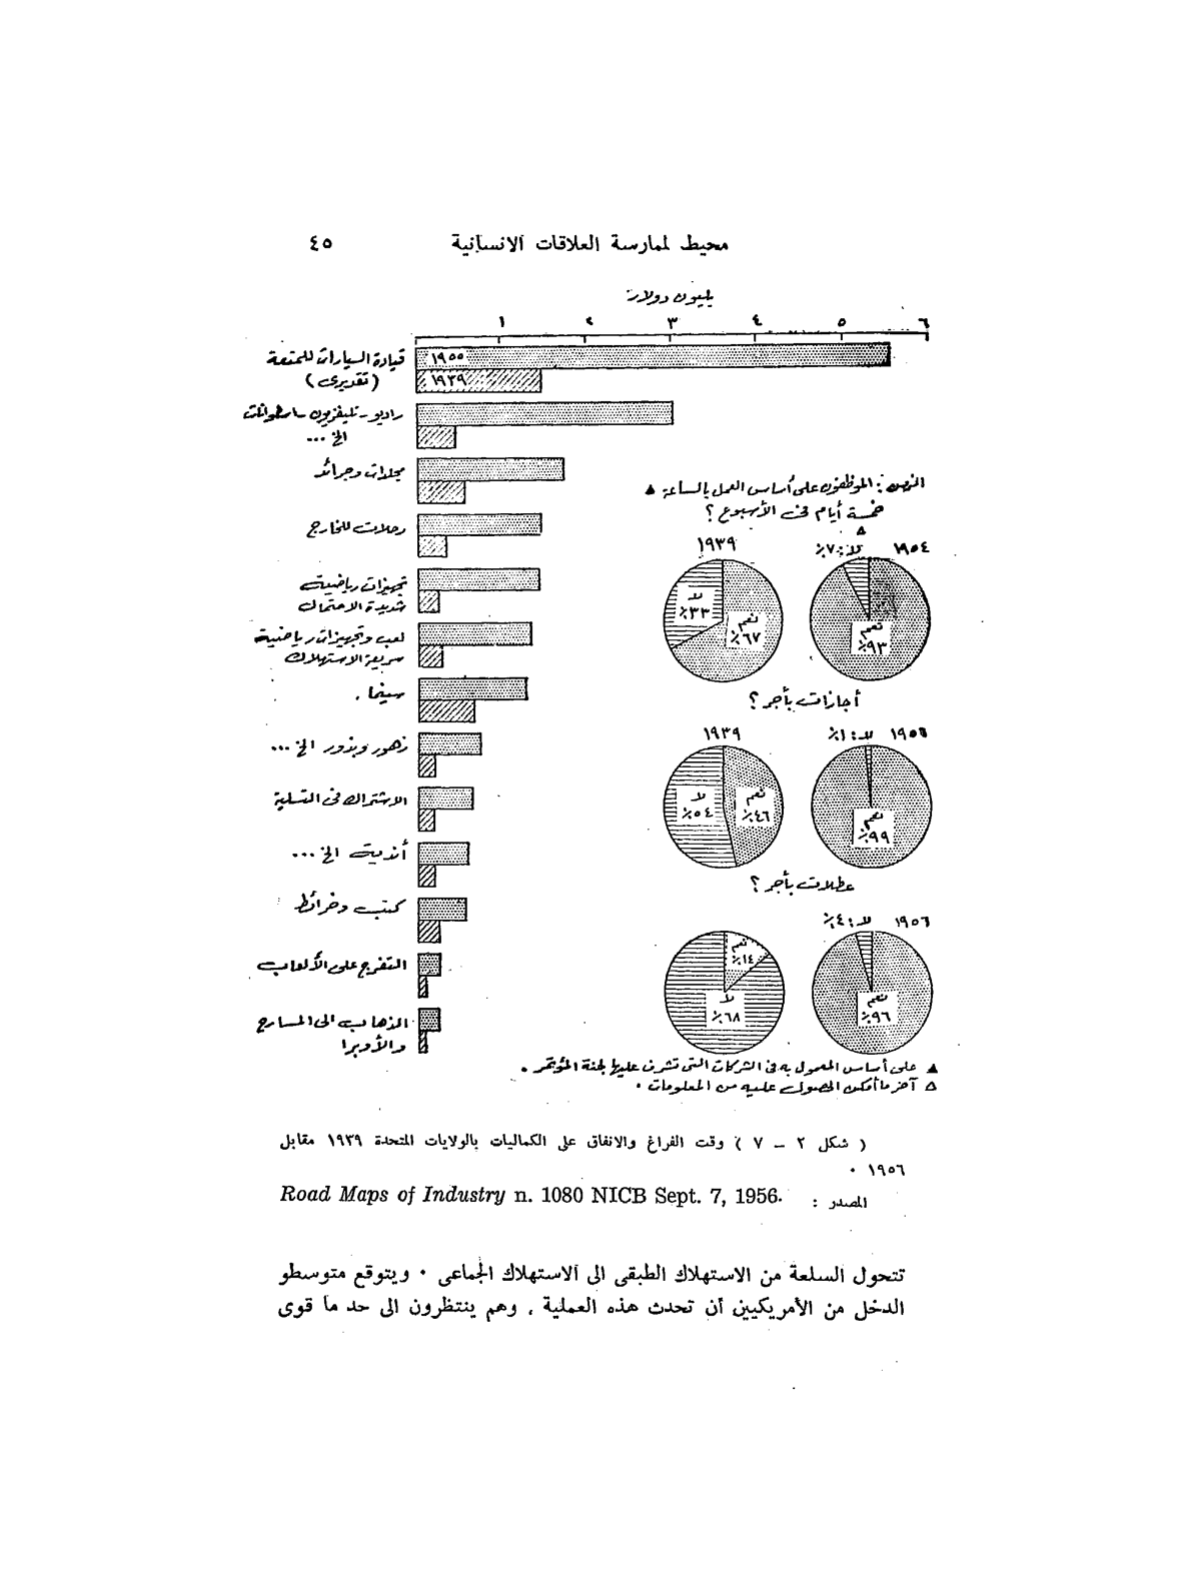 محيط لممارسة العلاقات الانسانية ٤٥
بليون دولار
١ ٢ ٣ ٤ ٥ ٦
قيادة السيارات للمتعة
(تقديرى)
١٩٥٥
١٩٣٩
راديو - تليفزيون - اسطوانات
الخ ...
مجلات وجرائد
رحلات للخارج
تجهيزات رياضية
شديدة الاحتمال
لعب وتجهيزات رياضية
سريعة الاستهلاك
سينما .
زهور وبذور الخ ...
الاشتراك فى التسلية
أندية الخ ...
كتب وخرائط
التفرج على الألعاب
الذهاب الى المسارح
والأوبرا
: الموظفون على أساس العمل بالساعة ▲
خمسة أيام فى الأسبوع ؟
△
١٩٣٩
لا
٣٣٪
نعم
٦٧٪
١٩٥٤ لا : ٧٪
نعم
٩٣٪
أجازات بأجر ؟
١٩٣٩
لا
٥٤٪
نعم
٤٦٪
لا : ١٪
نعم
٩٩٪
عطلات بأجر ؟
نعم
١٤٪
لا
٦٨٪
١٩٥٦ لا : ٤٪
نعم
٩٦٪
▲ على أساس المعمول به فى الشركات التى تشرف عليها لجنة المؤتمر .
△ آخر ما أمكن الحصول عليه من المعلومات .
( شكل ٢ – ٧ ) وقت الفراغ والانفاق على الكماليات بالولايات المتحدة ١٩٣٩ مقابل
١٩٥٦ .
المصدر : Road Maps of Industry n. 1080 NICB Sept. 7, 1956.
تتحول السلعة من الاستهلاك الطبقى الى الاستهلاك الجماعى . ويتوقع متوسطو
الدخل من الأمريكيين أن تحدث هذه العملية ، وهم ينتظرون الى حد ما قوى